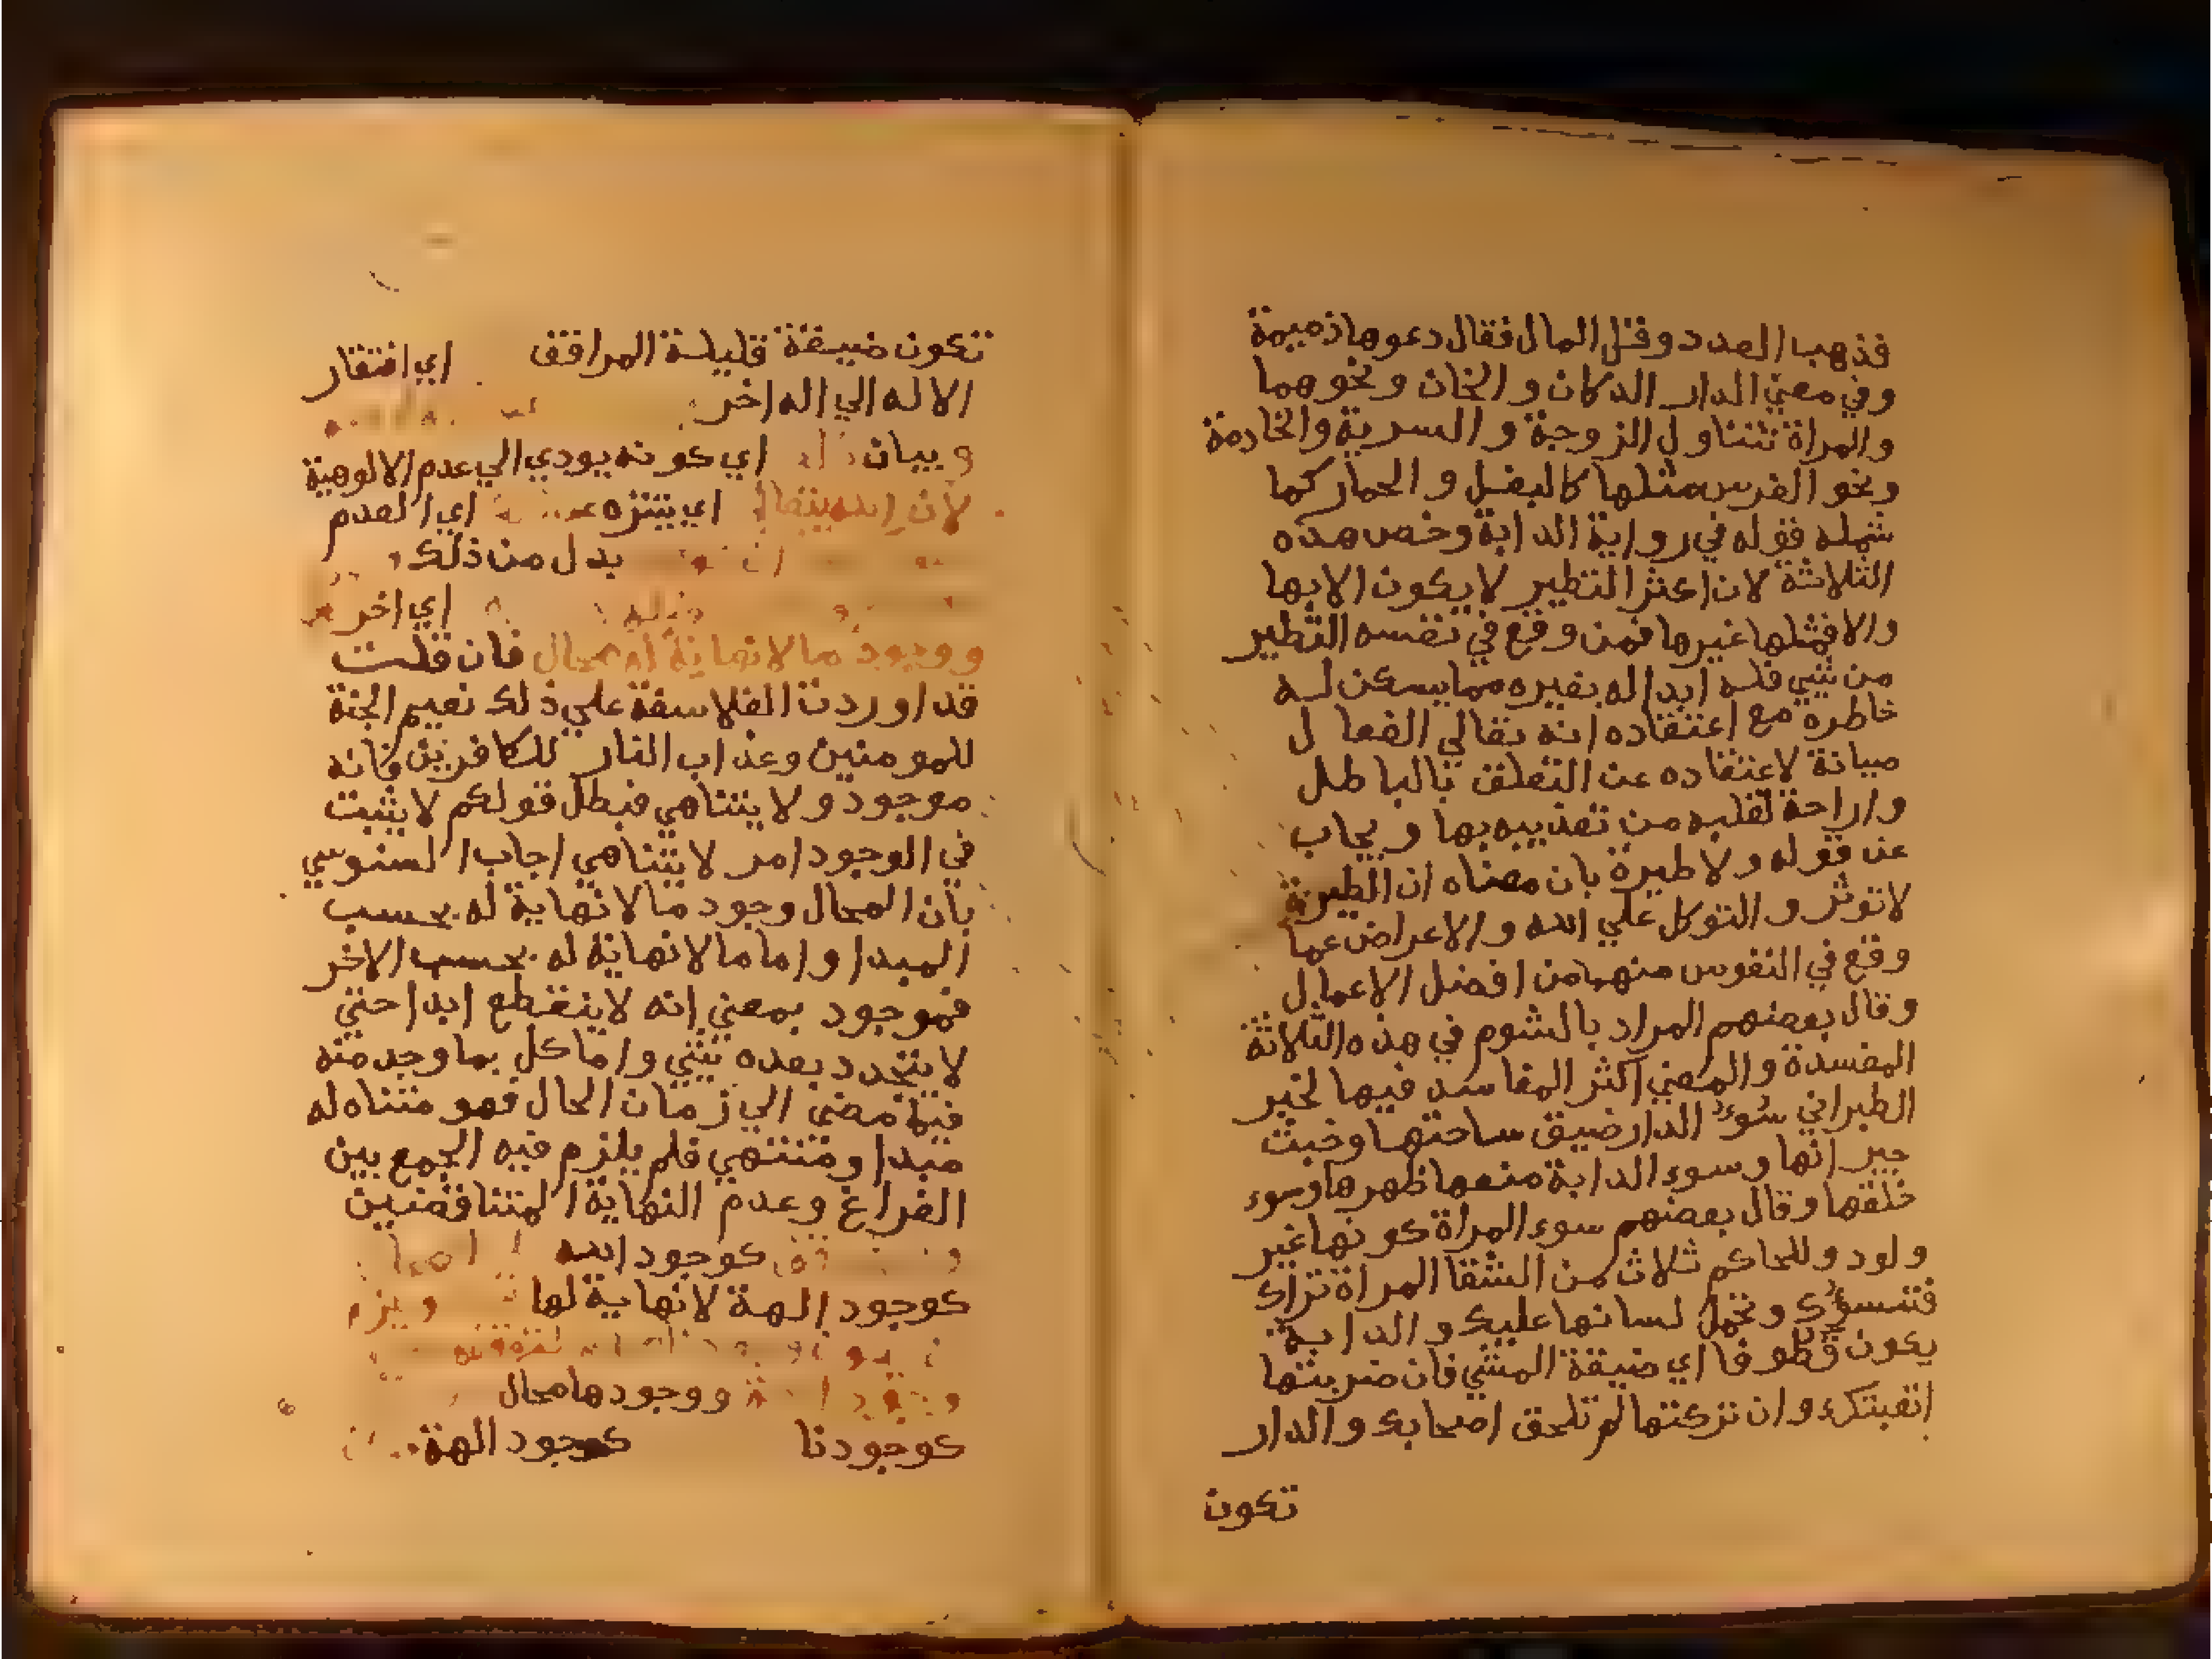 فذهب العدد وقل المال فقال دعوها ذميمة
وفي معني الدار الدكان والخان ونحوهما
والمراة تتناول الزوجة والسرية والخادمة
ونحو الفرس مثلها كالبغل والحمار كما
شمله قوله في رواية الدابة وخص هده
الثلاثة لان اكثر التطير لا يكون الا بها
والا فمثلها غيرها فمن وقع في نفسه التطير
من شي فله ابداله بغيره مما يسكن له
خاطره مع اعتقاده انه تعالي الفعال
صيانة لاعتقاده عن التعلق بالباطل
واراحة لقلبه من تعذيبه بها ويجاب
عن قوله ولا طيرة بان معناه ان الطيرة
لا توثر والتوكل علي الله والاعراض عما
وقع في النفوس منها من افضل الاعمال
وقال بعضهم المراد بالشوم في هذه الثلاثة
المفسدة والمعني اكثر المفاسد فيها لخبر
الطبراني سوء الدار ضيق ساحتها وخبث
جيرانها وسوء الدابة منعها ظهرها وسوء
خلقها وقال بعضهم سوء المراة كونها غير
ولود وللحاكم ثلاث من الشقا المراة تراك
فتسؤك وتحمل لسانها عليك والدابة
يكون قطوفا اي ضيقة المشي فان ضربتها
اتعبتك وان تركتها لم تلحق اصحابك والدار
تكون
تكون ضيقة قليلة المرافق اي افتقار
الاله الي اله اخر
وبيان اي كونه يودي الي عدم الالوهية
لان الله يتعالي اي يتنزه اي العدم
بدل من ذلك
اي اخر
ووجود ما لا نهاية له محال فان قلت
قد اوردت الفلاسفة علي ذلك نعيم الجنة
للمومنين وعذاب النار للكافرين فانه
موجود ولا يتناهي فبطل قولكم لا يثبت
في الوجود امر لا يتناهي اجاب السنوسي
بان المحال وجود ما لا نهاية له بحسب
المبدا واما ما لا نهاية له بحسب الاخر
فموجود بمعني انه لا ينقطع ابدا حتي
لا يتجدد بعده شي واما كل بما وجد منه
فيما مضي الي زمان الحال فهو متناه له
مبدا ومنتهي فلم يلزم فيه الجمع بين
الفراغ وعدم النهاية المتناقضين
كوجود الله
كوجود الهة لا نهاية لها
ووجودها محال
كوجودنا كوجود الهة